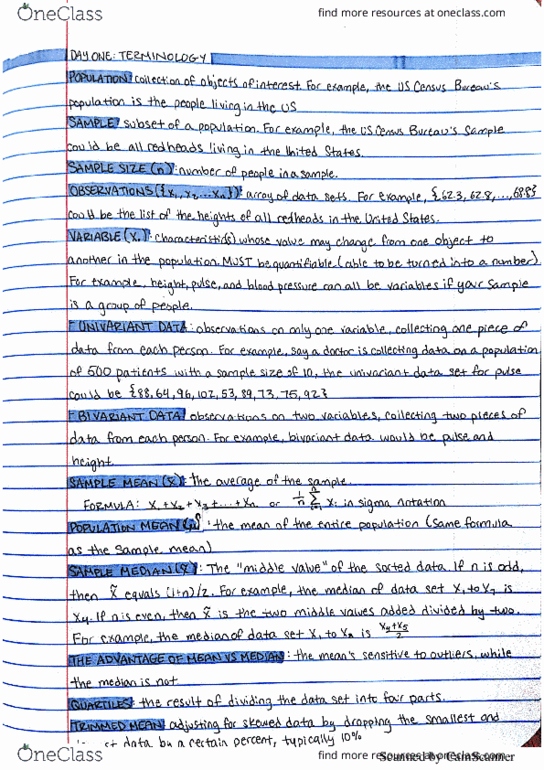 OneClass
find more resources at oneclass.com
DAY ONE: TERMINOLOGY
POPULATION: collection of objects of interest. For example, the US Census Bureau's
population is the people living in the US
SAMPLE: subset of a population. For example, the US Census Bureau's sample
could be all redheads living in the United States.
SAMPLE SIZE (n): number of people in a sample.
OBSERVATIONS ({x₁, x₂ ... xₙ}): array of data sets. For example, {62.3, 62.8, ..., 68.8}
could be the list of the heights of all redheads in the United States.
VARIABLE (X): characteristic(s) whose value may change from one object to
another in the population. MUST be quantifiable (able to be turned into a number)
For example, height, pulse, and blood pressure can all be variables if your sample
is a group of people.
UNIVARIANT DATA: observations on only one variable, collecting one piece of
data from each person. For example, say a doctor is collecting data on a population
of 500 patients with a sample size of 10, the univariant data set for pulse
could be {88, 64, 96, 102, 53, 89, 73, 75, 92}
BIVARIANT DATA: observations on two variables, collecting two pieces of
data from each person. For example, bivariant data would be pulse and
height.
SAMPLE MEAN (x̄): the average of the sample.
FORMULA: x₁ + x₂ + x₃ + ... + xₙ or 1/n Σ xᵢ in sigma notation
POPULATION MEAN (μ): the mean of the entire population (same formula
as the sample mean)
SAMPLE MEDIAN (x̃): The "middle value" of the sorted data. If n is odd,
then x̃ equals (1+n)/2. For example, the median of data set X₁ to X₇ is
X₄. If n is even, then x̃ is the two middle values added divided by two.
For example, the median of data set X₁ to X₈ is (x₄+x₅)/2
THE ADVANTAGE OF MEAN VS MEDIAN: the mean's sensitive to outliers, while
the median is not.
QUARTILES: the result of dividing the data set into four parts.
TRIMMED MEAN: adjusting for skewed data by dropping the smallest and
data by a certain percent, typically 10%
OneClass
find more resources at oneclass.com
Scanned by CamScanner